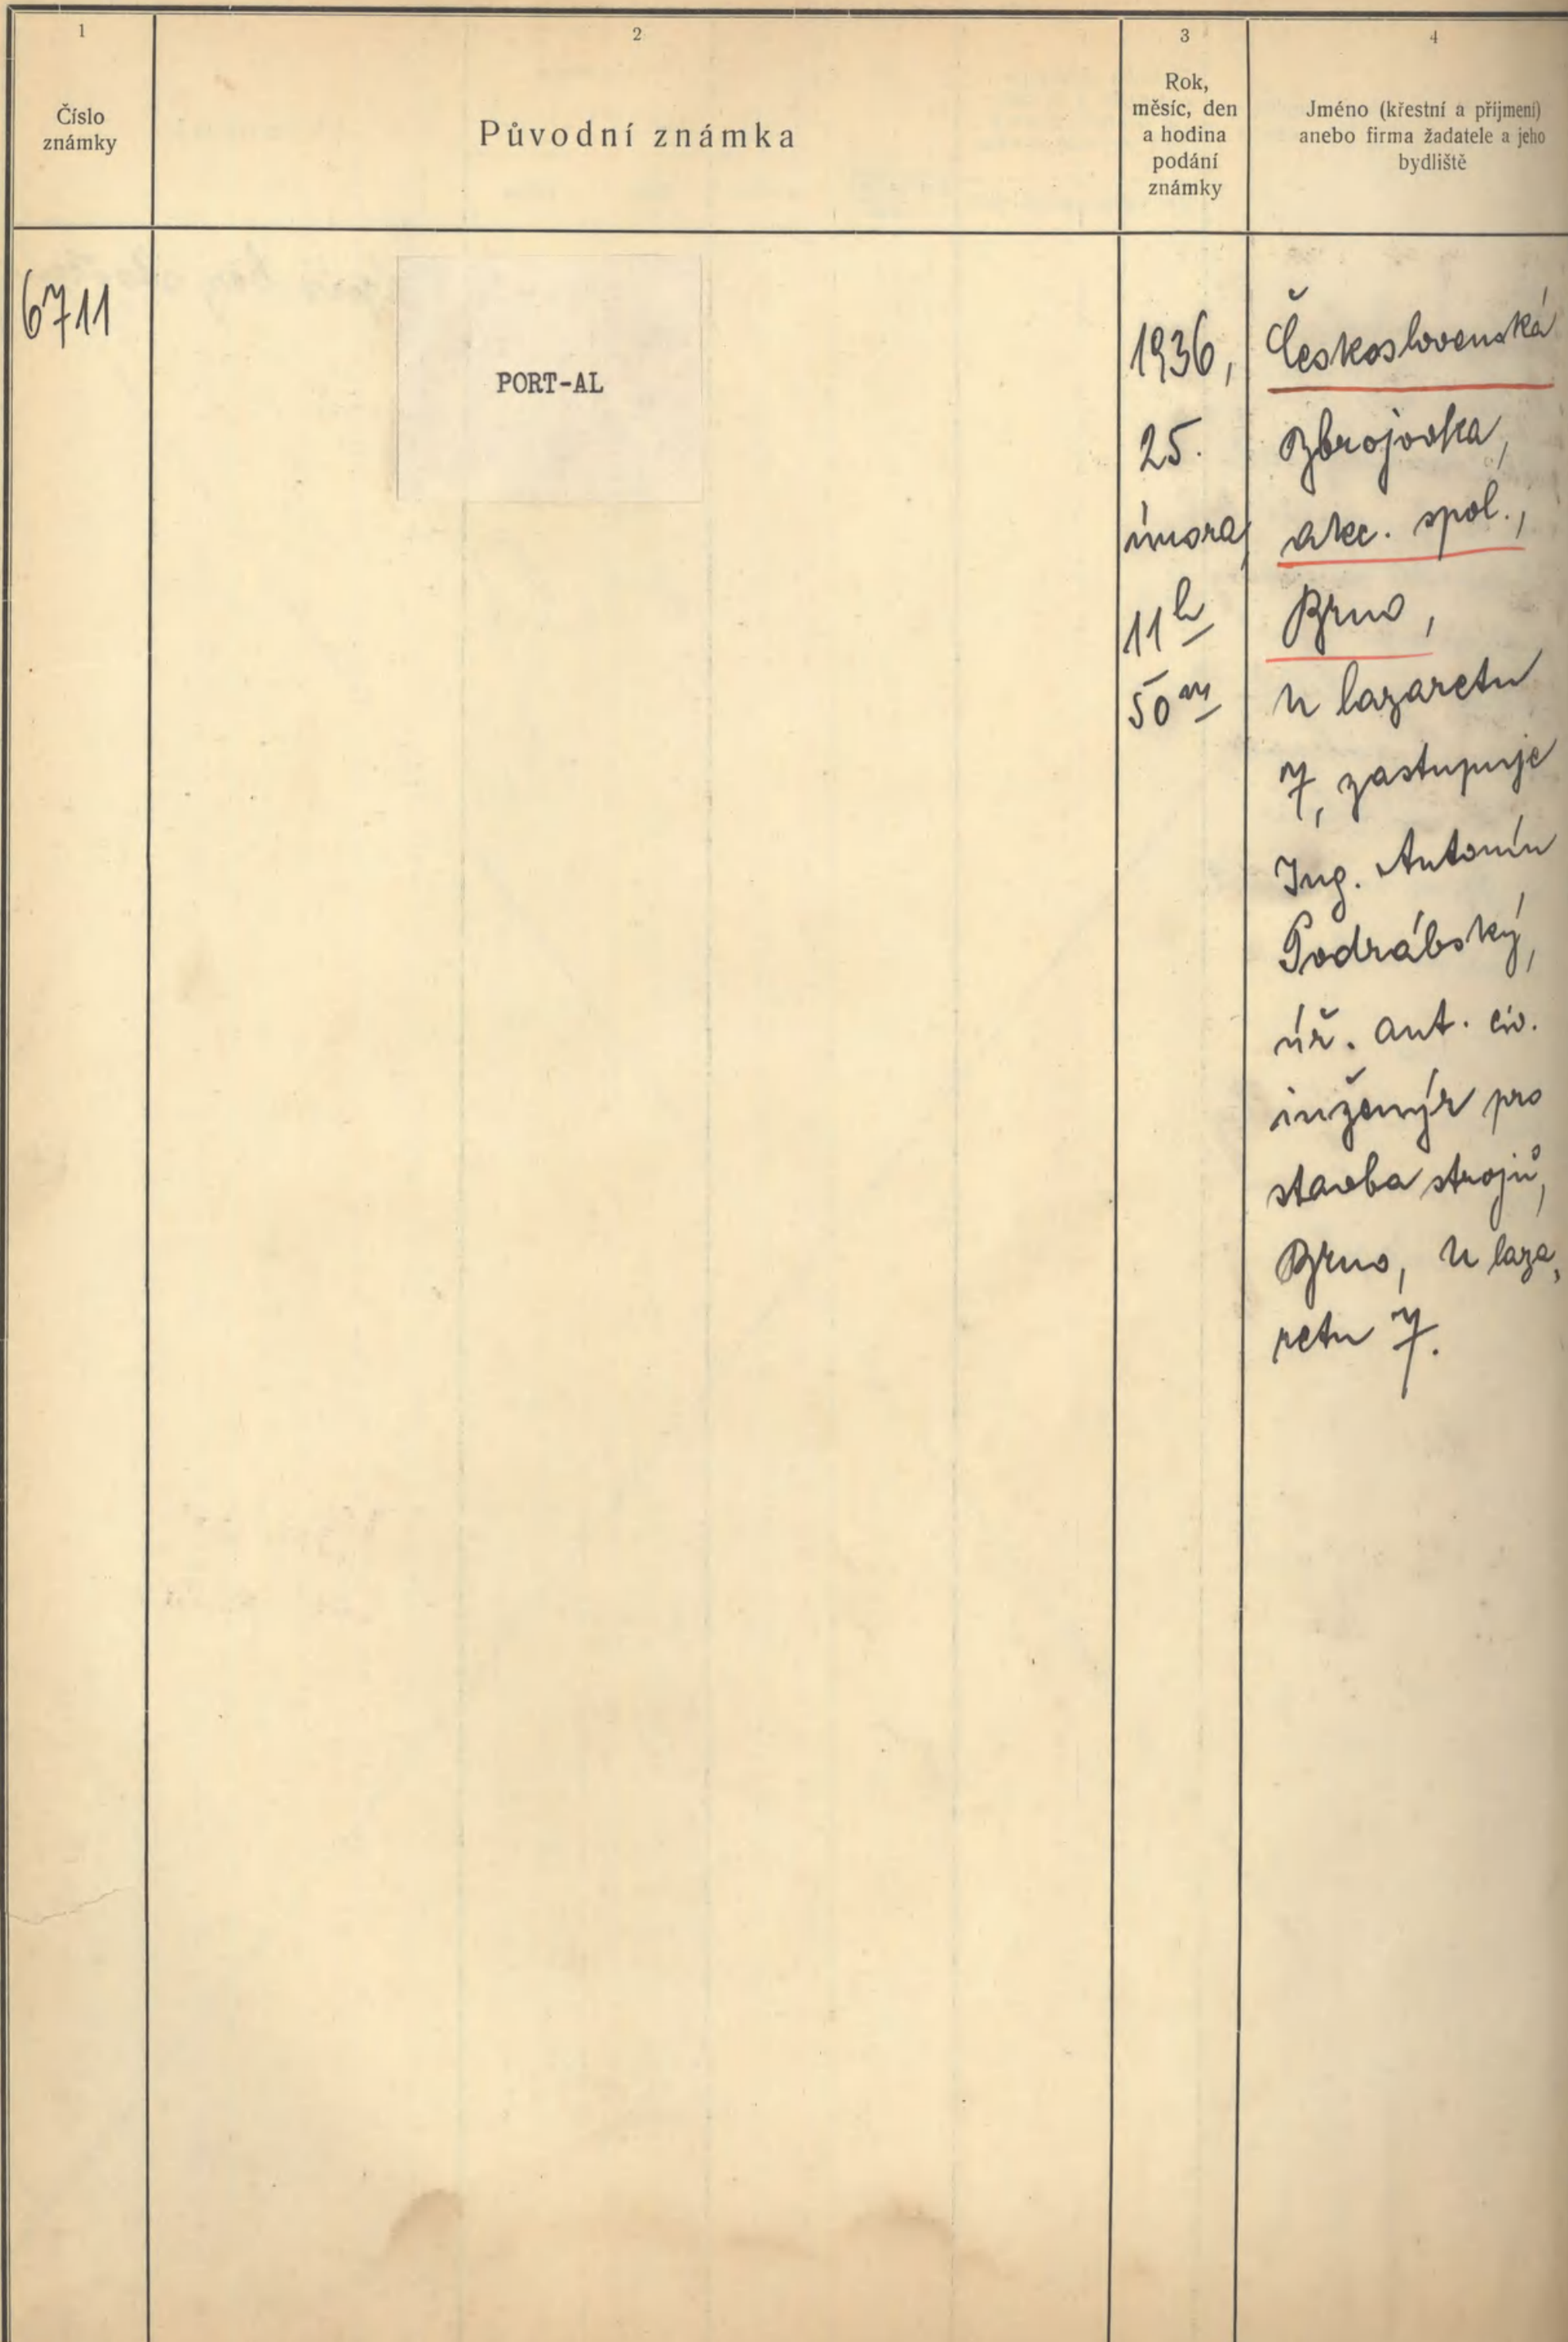 1
Číslo
známky
2
Původní známka
3
Rok,
měsíc, den
a hodina
podání
známky
4
Jméno (křestní a příjmení)
anebo firma žadatele a jeho
bydliště
6711
PORT-AL
1936,
25.
února,
11 h
50 m
Československá
Zbrojovka,
akc. spol.,
Brno,
u lazaretu
7, zastupuje
Ing. Antonín
Podrábský,
úř. aut. civ.
inženýr pro
stavba strojů,
Brno, u laza
retu 7.